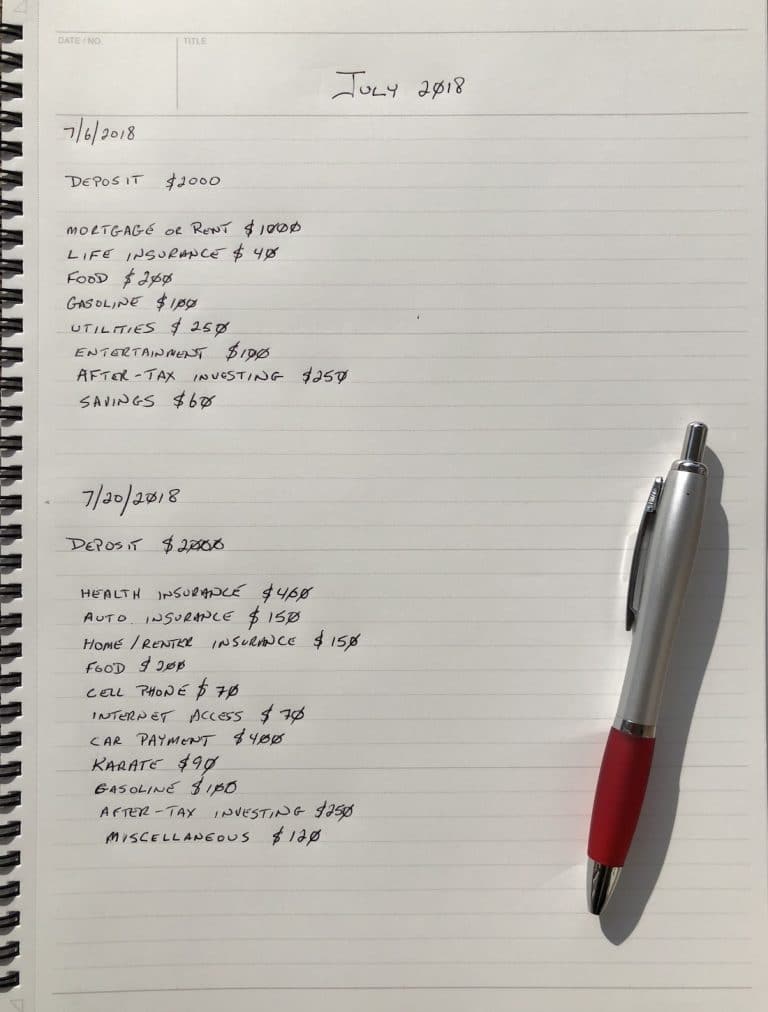 DATE / NO.
TITLE
JULY 2018
7/6/2018
DEPOSIT $2000
MORTGAGE OR RENT $1000
LIFE INSURANCE $40
FOOD $200
GASOLINE $100
UTILITIES $250
ENTERTAINMENT $100
AFTER-TAX INVESTING $250
SAVINGS $60
7/20/2018
DEPOSIT $2000
HEALTH INSURANCE $400
AUTO INSURANCE $150
HOME/RENTER INSURANCE $150
FOOD $200
CELL PHONE $70
INTERNET ACCESS $70
CAR PAYMENT $400
KARATE $90
GASOLINE $100
AFTER-TAX INVESTING $250
MISCELLANEOUS $120